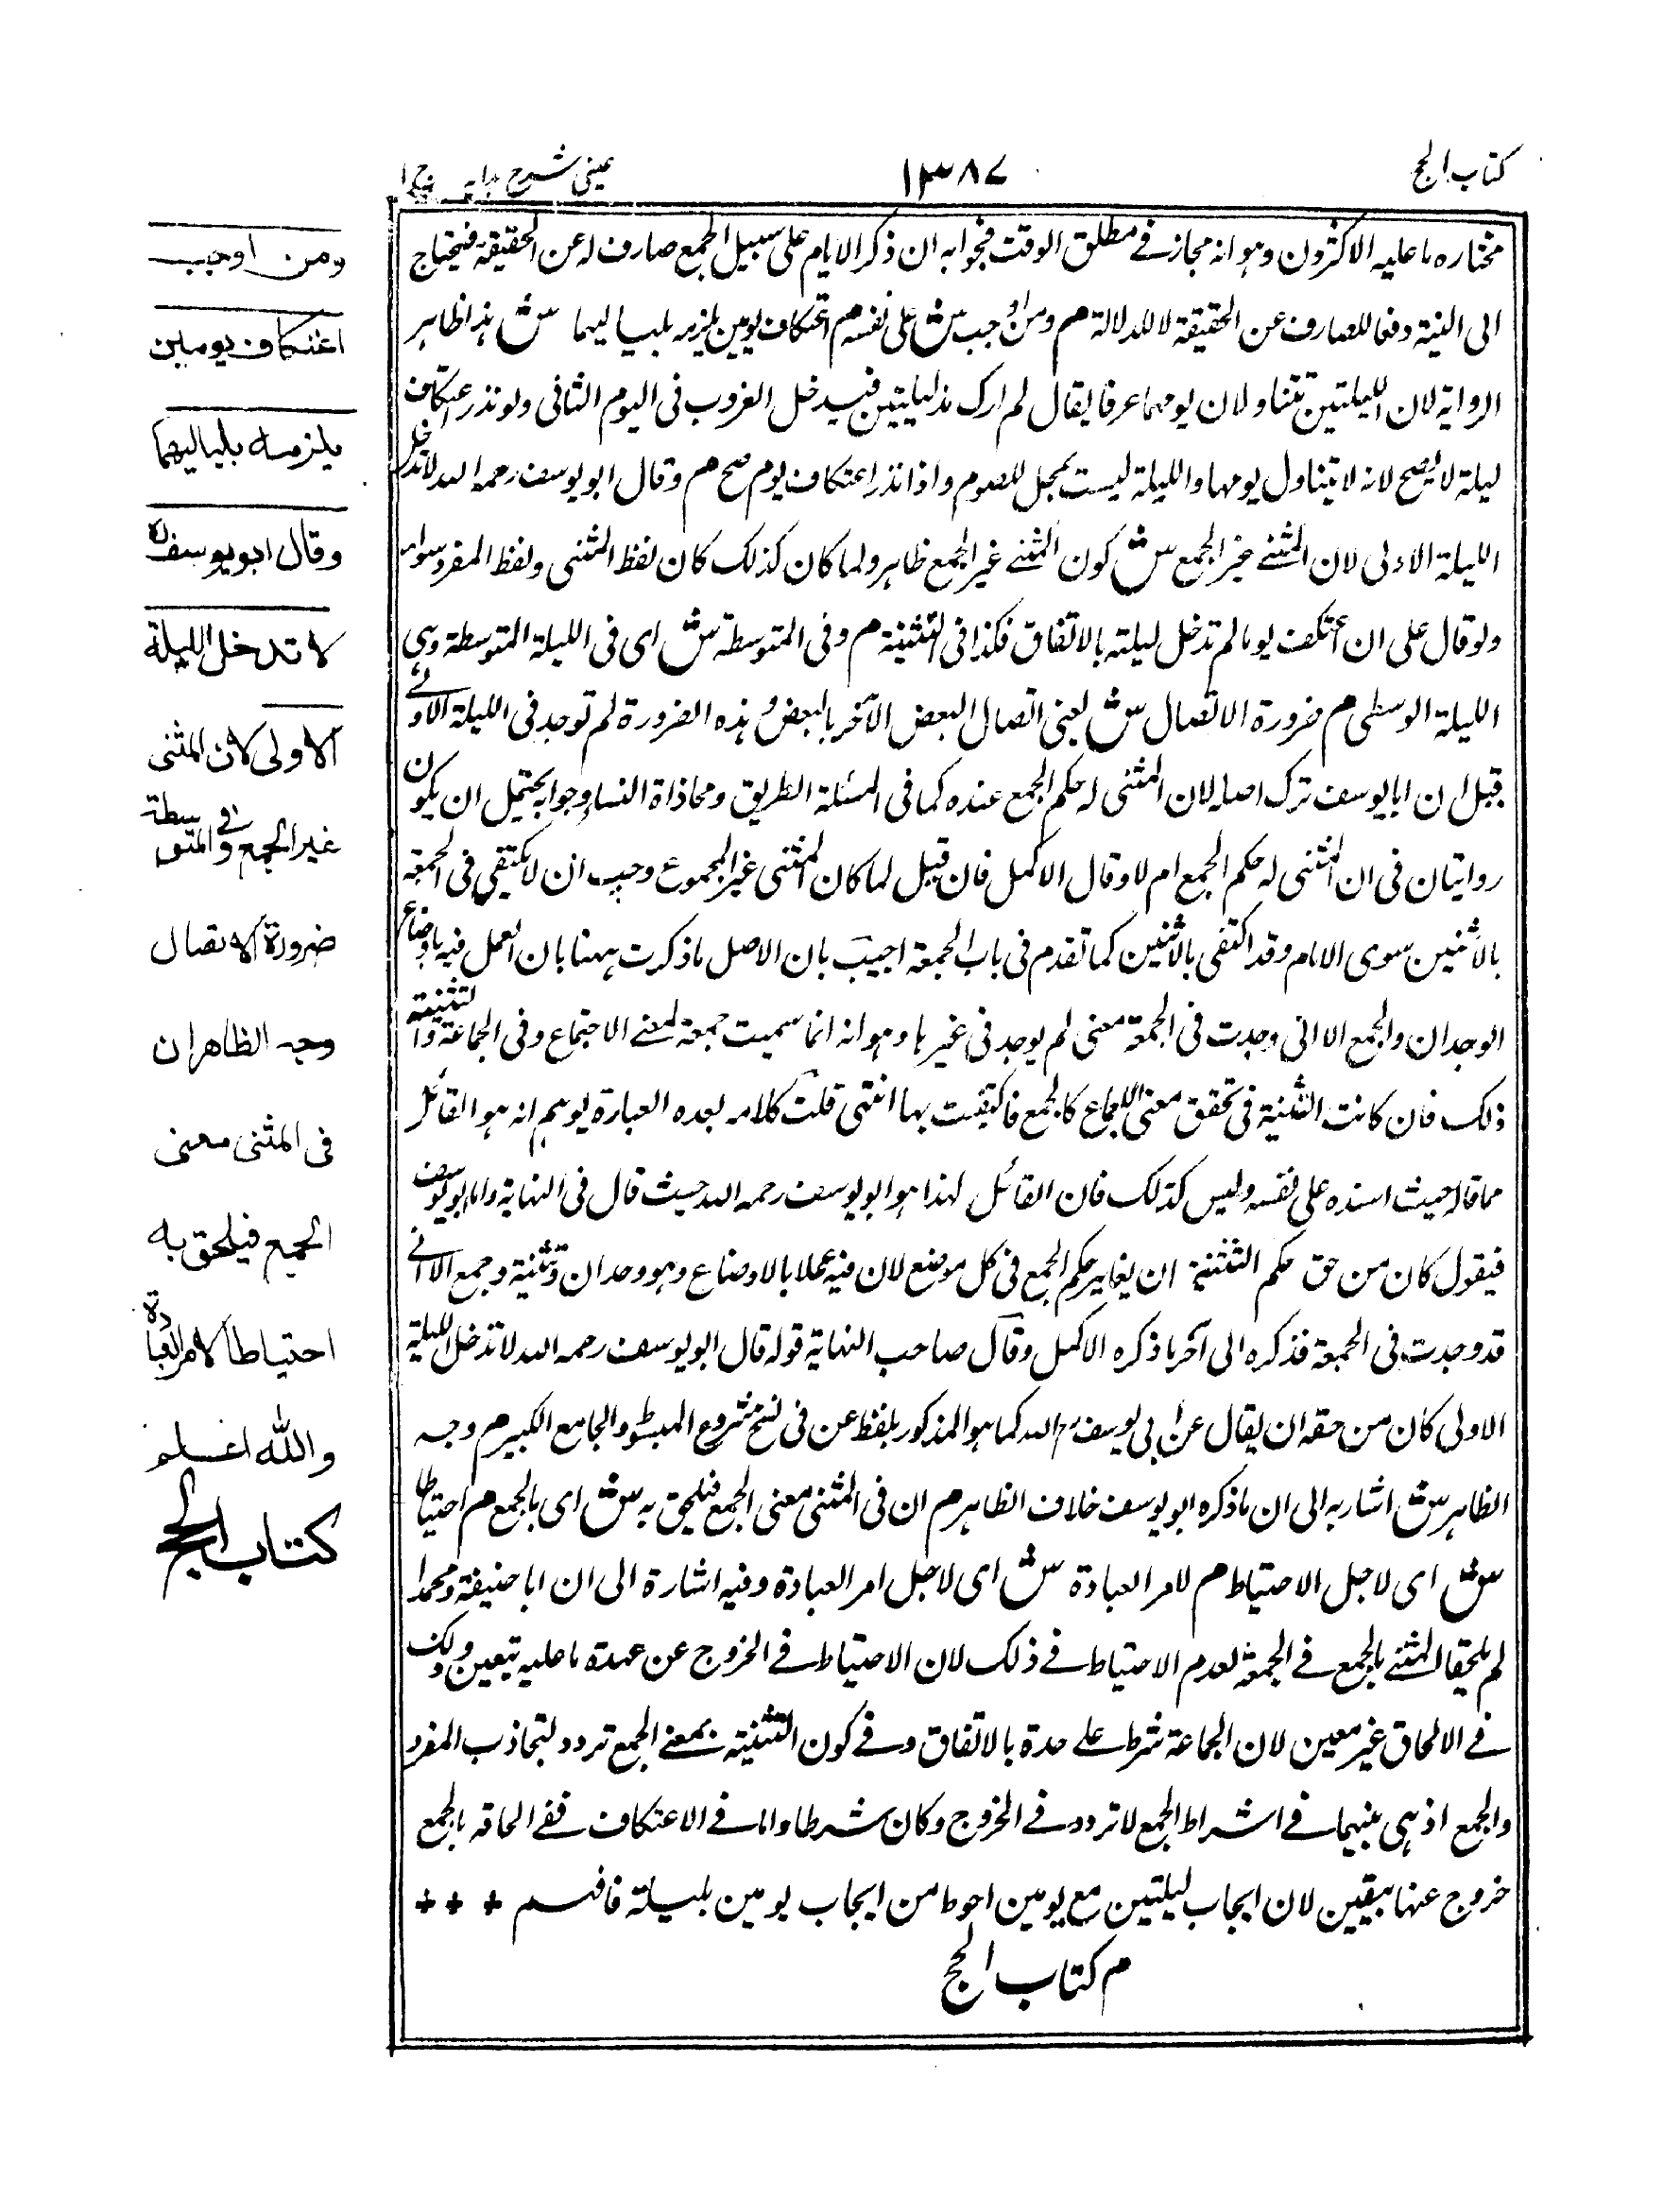 كتاب الحج
١٣٨٧
عینی شرح هدایہ ج ١
مختاره ما عليه الاكثرون وهو انه مجاز فے مطلق الوقت فجوابه ان ذكر الايام على سبيل الجمع صارف له عن الحقيقة فيحتاج
الى النية دفعا للصارف عن الحقيقة لا للدلالة م ومن اوجب ش على نفسه م اعتكاف يومين يلزمه بلياليهما ش هذا ظاهر
الرواية لان الليلتين تتناولان يومهما عرفا يقال لم ارك مذ ليلتين فيدخل الغروب فى اليوم الثانى ولو نذر اعتكاف
ليلة لا يصح لانه لا يتناول يومها والليلة ليست بمحل للصوم واذا نذر اعتكاف يوم صح م وقال ابو يوسف رحمه الله لا تدخل
الليلة الاولى لان المثنے غير الجمع ش كون المثنے غير الجمع ظاهر ولما كان كذلك كان لفظ المثنى ولفظ المفرد سواء
ولو قال على ان اعتكف يوما لم تدخل ليلته بالاتفاق فكذا فى التثنية م وفى المتوسطة ش اى فى الليلة المتوسطة وهى
الليلة الوسطى م ضرورة الاتصال ش يعنى اتصال البعض الآخر بالبعض و هذه الضرورة لم توجد فى الليلة الاولے
قيل ان ابا يوسف ترك اصله لان المثنى له حكم الجمع عنده كما فى المسئلة الطريق ومحاذاة النساء وجوابه يحتمل ان يكون
روايتان فى ان المثنى له حكم الجمع ام لا وقال الاكمل فان قيل لما كان المثنى غير المجموع وجب ان لا يكتفى فى الجمعة
بالاثنين سوى الامام وقد اكتفى بالاثنين كما تقدم فى باب الجمعة اجيب بان الاصل ما ذكرت ههنا بان العمل فيه باوضاع
الوحدان والجمع الا انى وجدت فى الجمعة معنى لم يوجد فى غيرها وهو انه انما سميت جمعة لمعنے الاجتماع وفى الجماعة والتثنية
ذلك فان كانت التثنية فى تحقق معنى الاجتماع كالجمع فاكتفيت بها انتهى قلت كلامه بعده العبارة يوهم انه هو القائل
مما قاله حيث اسنده على نفسه وليس كذلك فان القائل لهذا هو ابو يوسف رحمه الله حيث قال فى النهاية واما ابو يوسف
فيقول كان من حق حكم التثنية ان يغاير حكم الجمع فى كل موضع لان فيه عملا بالاوضاع وهو وحدان وتثنية وجمع الا انے
قد وجدت فى الجمعة فذكره الى آخر ما ذكره الاكمل وقال صاحب النهاية قوله قال ابو يوسف رحمه الله لا تدخل الليلة
الاولى كان من حقه ان يقال عن ابى يوسف رح الله كما هو المذكور بلفظ عن فى نسخ شروح المبسوط والجامع الكبير م وجه
الظاهر ش اشار به الى ان ما ذكره ابو يوسف خلاف الظاهر م ان فى المثنى معنى الجمع فيلحق به ش اى بالجمع م احتياطا
ش اى لاجل الاحتياط م لامر العبادة ش اى لاجل امر العبادة وفيه اشارة الى ان ابا حنيفة ومحمدا
لم يلحقا المثنے بالجمع فے الجمعة لعدم الاحتياط فے ذلك لان الاحتياط فے الخروج عن عهدة ما عليه بيقين وذلك
فے الالحاق غير معين لان الجماعة شرط على حدة بالاتفاق وفے كون التثنية بمعنے الجمع تردد لتجاذب المفرد
والجمع اذ هى بينهما فے اشتراط الجمع لا تردد فے الخروج وكان شرطا واما فے الاعتكاف ففے الحاقه بالجمع
خروج عنها بيقين لان ايجاب ليلتين مع يومين احوط من ايجاب يومين بليلة فافهم + + +
م كتاب الحج
ومن اوجب
اعتكاف يومين
يلزمه بلياليهما
وقال ابو يوسف رہ
لا تدخل الليلة
الاولى لان المثنى
غير الجمع وفى المتوسطة
ضرورة الاتصال
وجه الظاهر ان
فى المثنى معنى
الجمع فيلحق به
احتياطا لامر العبادة
والله اعلم
كتاب الحج